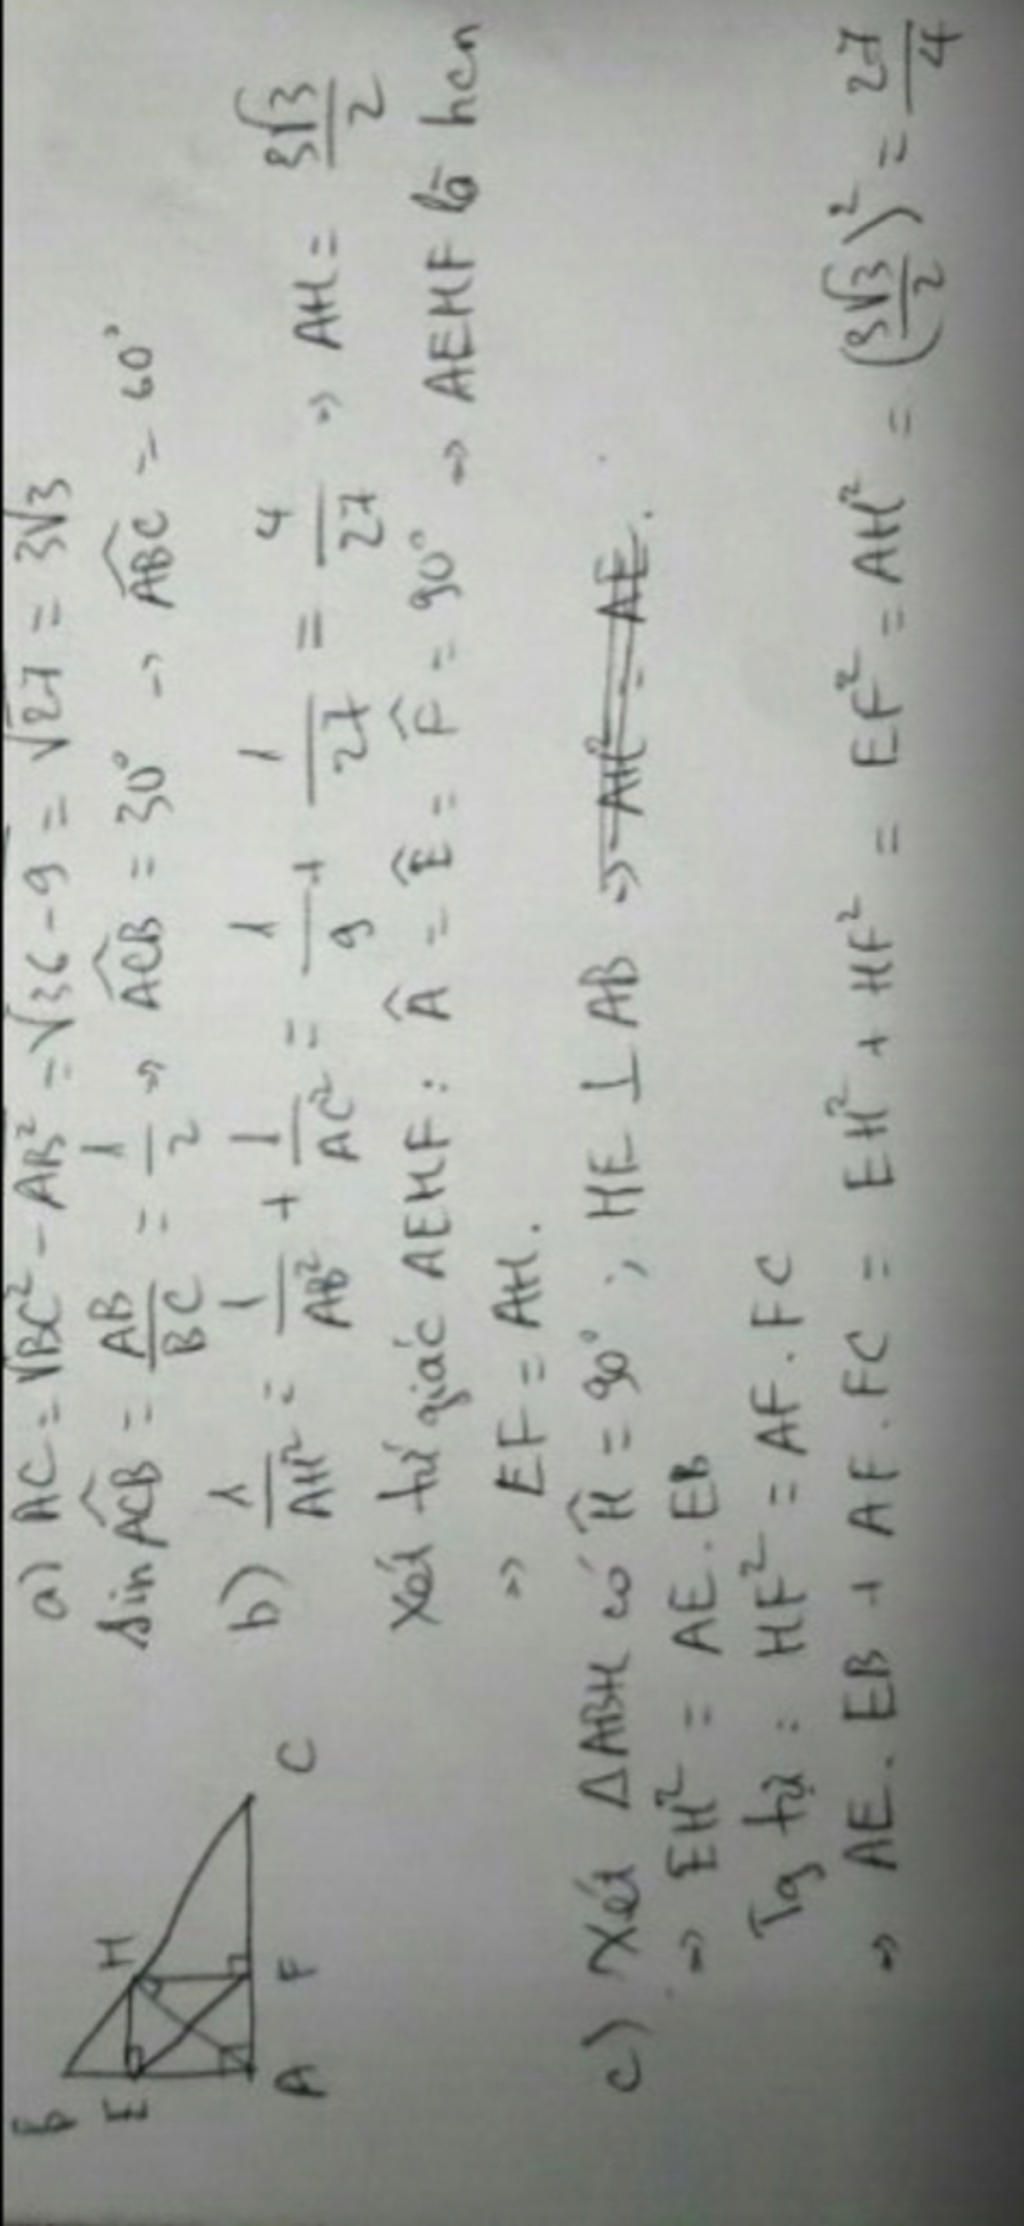 B
E
H
A
F
C
a) AC = √BC² - AB² = √36 - 9 = √27 = 3√3
sin ACB^ = AB/BC = 1/2 => ACB^ = 30° => ABC^ = 60°
b) 1/AH² = 1/AB² + 1/AC² = 1/9 + 1/27 = 4/27 => AH = 3√3/2
Xét tứ giác AEHF: Â = Ê = F^ = 90° => AEHF là hcn
=> EF = AH.
c) Xét ΔABH có H^ = 90°; HE ⊥ AB => AH² = AE.
=> EH² = AE.EB
Tg tự: HF² = AF.FC
=> AE.EB + AF.FC = EH² + HF² = EF² = AH² = (3√3/2)² = 27/4